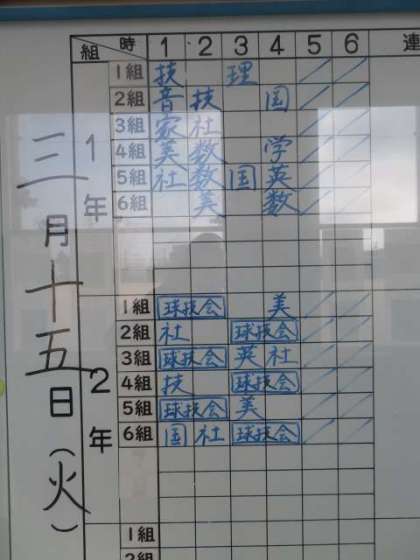 組 時 1 2 3 4 5 6 連
三月十五日(火)
1年
1組 技 理
2組 音 技 国
3組 家 社
4組 美 数 学
5組 社 数 国 英
6組 美 数
2年
1組 球技会 美
2組 社 球技会
3組 球技会 英 社
4組 技 球技会
5組 球技会 美
6組 国 社 球技会
1組
2組